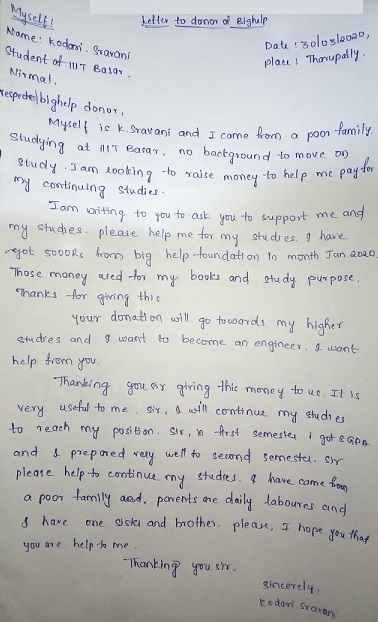 Myself!
Letter to donor of Bighelp
Name: Kodari. Sravani
Date: 30/05/2020,
Student of IIIT Basar.
place: Thanupally.
Nirmal.
respected bighelp donor,
Myself is K. Sravani and I come from a poor family.
Studying at IIIT Basar, no background to move on
study. I am looking to raise money to help me pay for
my continuing studies.
I am writing to you to ask you to support me and
my studies. please help me for my studies. I have
got 5000Rs from big help foundation in month Jan 2020.
Those money used for my books and study purpose.
Thanks for giving this
your donation will go towards my higher
studies and I want to become an engineer. I want
help from you.
Thanking you sir giving this money to us. It is
very useful to me. sir, I will continue my studies
to reach my position. Sir, in first semester i got 8 GPA
and I prepared very well to second semester. sir
please help to continue my studies. I have came from
a poor family and, parents are daily laboures and
I have one sister and brother. please, I hope you that
you are help to me.
Thanking you sir.
sincerely,
Kodari. Sravani